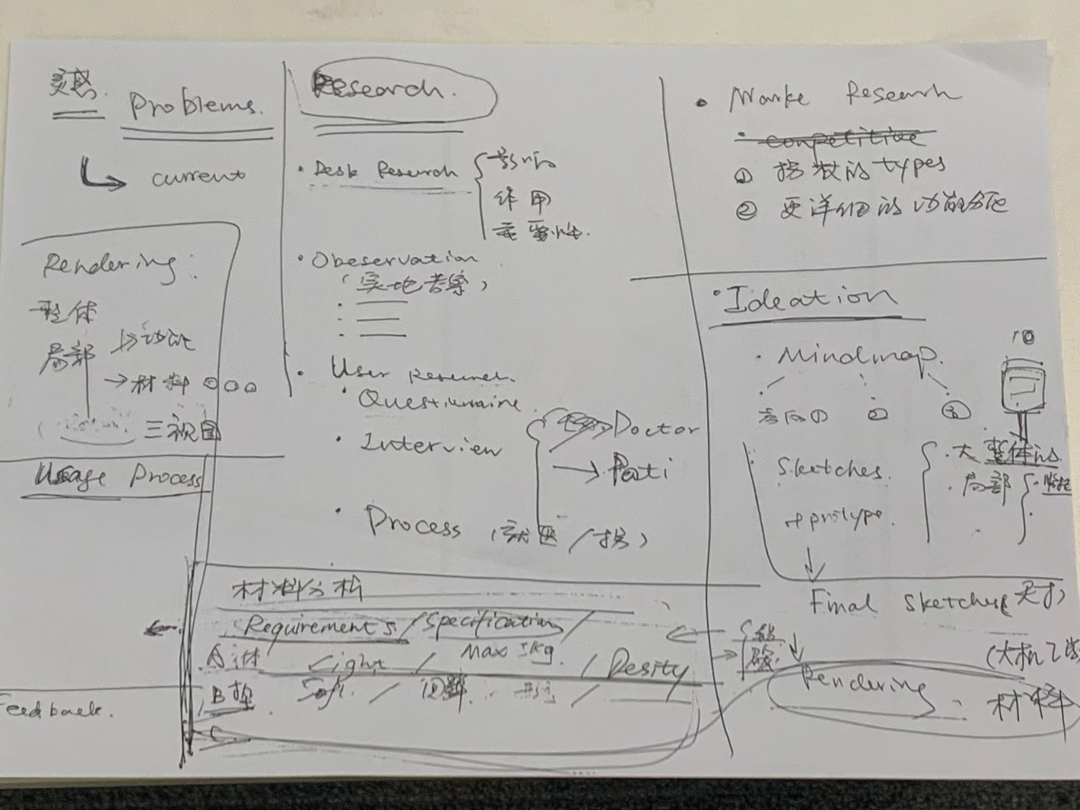 灵感.
Problems.
current
Rendering:
整体
局部 → 功能
→ 材料
三视图
Usage Process
Feedback.
Research.
· Desk Research
影响
作用
重要性.
· Obeservation
(实地考察)
· User Research
· Questionnaire
· Interview
Doctor
→ Pati
· Process (就医/
材料分析
Requirements / Specification /
A 主体 Light / Max 1kg. / Desity
B 垫 Soft. / 回弹
· Marke Research
· competitive
① types
② 更详细的功能分配
· Ideation
· Mindmap.
方向① ② ③
· Sketches.
+ protype.
大整体
局部
Final Sketches
Rendering
材料